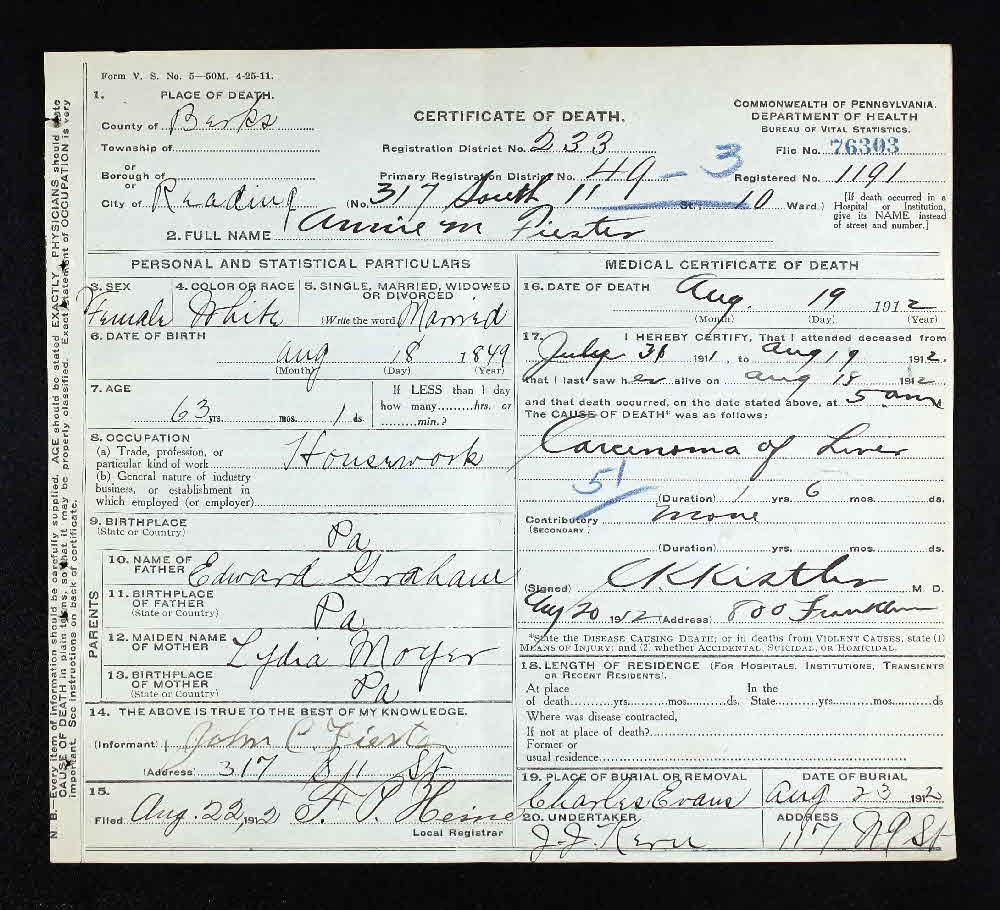 Form V. S. No. 5—50M. 4-25-11.
1. PLACE OF DEATH.
County of Berks
Township of
or
Borough of
or
City of Reading
CERTIFICATE OF DEATH.
Registration District No. 233
Primary Registration District No. 49 - 3
(No. 317 South 11 St.; 10 Ward.)
COMMONWEALTH OF PENNSYLVANIA.
DEPARTMENT OF HEALTH
BUREAU OF VITAL STATISTICS.
File No. 76303
Registered No. 1191
[If death occurred in a
Hospital or Institution,
give its NAME instead
of street and number.]
2. FULL NAME Annie M Fiester
PERSONAL AND STATISTICAL PARTICULARS
3. SEX
Female
4. COLOR OR RACE
White
5. SINGLE, MARRIED, WIDOWED
OR DIVORCED
(Write the word) Married
6. DATE OF BIRTH
Aug 18 1849
(Month) (Day) (Year)
7. AGE
63 yrs. mos. 1 ds.
If LESS than 1 day
how many......hrs. or
......min.?
8. OCCUPATION
(a) Trade, profession, or
particular kind of work Housework
(b) General nature of industry
business, or establishment in
which employed (or employer)
9. BIRTHPLACE
(State or Country)
Pa
PARENTS
10. NAME OF
FATHER Edward Graham
11. BIRTHPLACE
OF FATHER
(State or Country)
Pa
12. MAIDEN NAME
OF MOTHER Lydia Moyer
13. BIRTHPLACE
OF MOTHER
(State or Country)
Pa
14. THE ABOVE IS TRUE TO THE BEST OF MY KNOWLEDGE.
(Informant) John C. Fiester
(Address) 317 S 11 St
15.
Filed Aug. 22, 1912 F. P. Heine
Local Registrar
MEDICAL CERTIFICATE OF DEATH
16. DATE OF DEATH
Aug. 19 1912
(Month) (Day) (Year)
17. I HEREBY CERTIFY, That I attended deceased from
July 31 191, to Aug 19 1912.
that I last saw her alive on Aug 18 1912
and that death occurred, on the date stated above, at 5 am
The CAUSE OF DEATH* was as follows:
Carcinoma of Liver
51
(Duration) 1 yrs. 6 mos. ds.
Contributory None
(SECONDARY)
(Duration) yrs. mos. ds.
(Signed) C K Kistler M. D.
Aug 20 1912 (Address) 800 Franklin
*State the DISEASE CAUSING DEATH; or in deaths from VIOLENT CAUSES, state (1)
MEANS OF INJURY; and (2) whether ACCIDENTAL, SUICIDAL, OR HOMICIDAL.
18. LENGTH OF RESIDENCE (FOR HOSPITALS, INSTITUTIONS, TRANSIENTS
OR RECENT RESIDENTS).
At place
of death......yrs......mos......ds. In the
State......yrs......mos......ds
Where was disease contracted,
If not at place of death?
Former or
usual residence
19. PLACE OF BURIAL OR REMOVAL
Charles Evans
DATE OF BURIAL
Aug 23 1912
20. UNDERTAKER
J. J. Kern
ADDRESS
117 N 9 St
N. B.—Every item of information should be carefully supplied. AGE should be stated EXACTLY. PHYSICIANS should state
CAUSE OF DEATH in plain terms, so that it may be properly classified. Exact statement of OCCUPATION is very
important. See instructions on back of certificate.